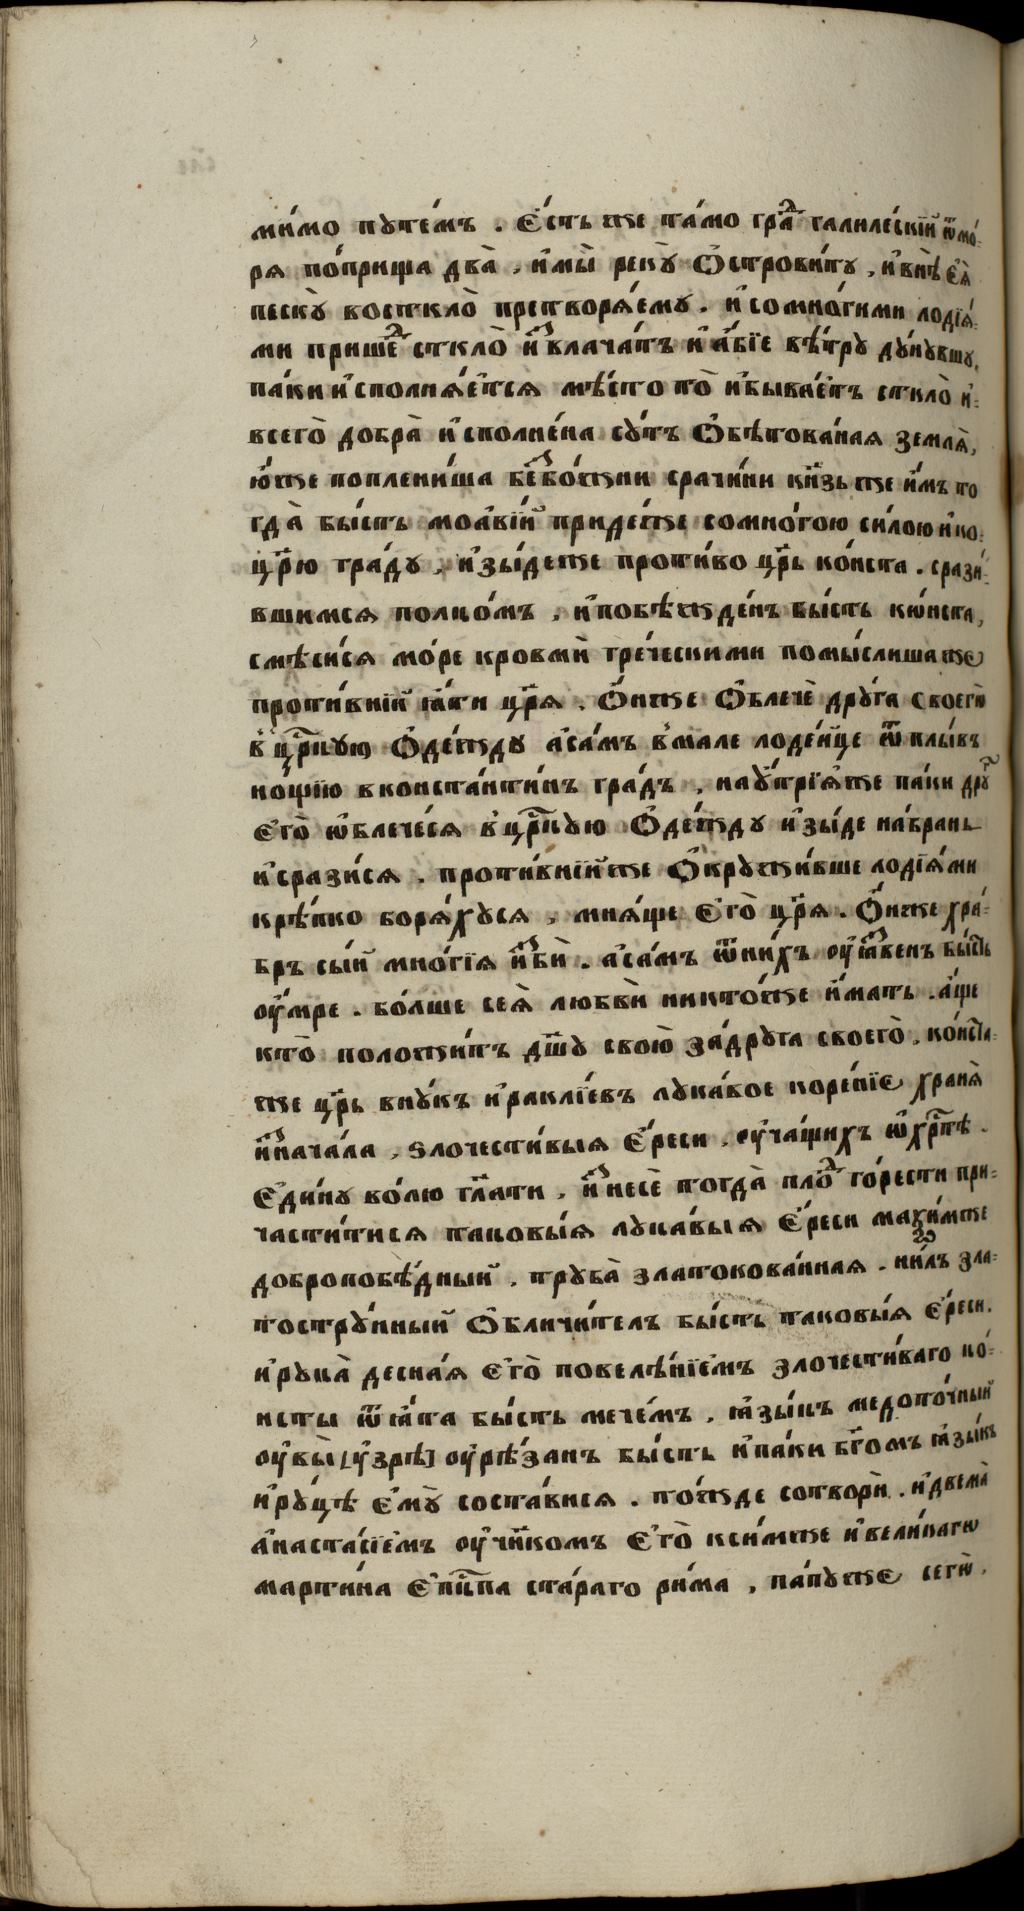 ми́мо путе́мъ . Є҆́сть же та́мо гра́ⷣ галиле́скїй ѿмо́-
ря по́прища два̀ , и҆мы̀ рекꙋ̀ Ѻ҆строви́ту , и҆внѣ̀ є҆ѧ̀
пескꙋ̀ восткло̀ претворѧ́ему . и҆сомно́гими лодїѧ́-
ми прише́ⷣ сткло̀ и҆ⷥвлача́тъ и҆ а҆́бїе вѣ́тру дꙋ́нувшу,
па́ки и҆сполнѧ́етсѧ мѣ́сто то̀ и҆быва́етъ сткло̀ и҆-
всего̀ добра̀ и҆спо́лнена сꙋ́тъ Ѻ҆бѣтова́наѧ землѧ̀,
ю҆́же поплени́ша беⷥбо́жни срачи́ни кн҃зь же и҆́мъ то
гда̀ бы́сть моа́вїй приде́же сомно́гою си́лою и҆ко-
цр҃ю гра́дꙋ , и҆зы́деже проти́во цр҃ь ко́нста . срази́-
вшимсѧ полко́мъ , и҆побѣжде́нъ бы́сть кѡ́нста,
смѣси́сѧ мо́ре кровмѝ гре́ческими помы́слишаже
проти́внїй ꙗ҆́ти цр҃ѧ . Ѻ҆́нже Ѻ҆блечѐ дрꙋ́га своегѡ
в҆ цр҃кꙋю Ѻ҆де́ждꙋ а҆са́мъ в҆мале лоде́йце ѿплы́въ
нощїю в константи́нъ гра́дъ , наꙋ҆́трїѧже па́ки дрꙋⷢ҇
є҆го̀ ѡ҆блече́сѧ в҆ цр҃кꙋю Ѻ҆де́ждꙋ и҆зы́де на́брань
и҆срази́сѧ . проти́внїйже Ѻ҆кружи́вше лодїѧ́ми
крѣ́пко борѧ́хусѧ , мнѧ́ще є҆го̀ цр҃ѧ . Ѻ҆́нже хра́-
бръ сы́й мно́гїѧ и҆ⷥбѝ . а҆са́мъ ѿни́хъ ᲂу҆ꙗ҆́звенъ бы́сть
ᲂу҆́мре . бо́лше сеѧ̀ любвѝ никто́же и҆́мать . а҆́ще
кто̀ положи́тъ дш҃ꙋ свою̀ за́дрꙋга своего̀ . ко́нста-
же цр҃ь внꙋ́къ и҆ракли́евъ лука́вое коре́нїє хранѧ̀
и҆ⷥнача́ла , ѕлочести́выѧ є҆́реси , ᲂу҆ча́щихъ ѡ҆хрⷭ҇тѣ .
Є҆ди́нꙋ во́лю гл҃ати , и҆ⷥнесѐ тогда̀ пло́ⷣ го́рести при-
части́тисѧ таковы́ѧ лука́выѧ є҆́реси махи́мже
добропобѣ́дный , трꙋба̀ златокова́нная . ни́лъ зла-
тострꙋ́йный Ѻ҆бличи́телъ бы́сть таковы́ѧ є҆́реси .
и҆рꙋка̀ десна́ѧ є҆го̀ повелѣ́нїємъ злочести́ваго ко́-
нсты ѿꙗ҆та бы́сть мече́мъ , ꙗ҆зы́къ медото́чный
ᲂу҆вы̀ [ᲂу҆зрѣ] ᲂу҆рѣ́занъ бы́сть и҆паки бг҃омъ ꙗ҆зы́къ
и҆рꙋ́цѣ є҆мꙋ̀ соста́висѧ . то́жде сотворѝ . и҆двема̀
а҆наста́сїємъ ᲂу҆чн҃комъ є҆го̀ кси́мже и҆вели́кагѡ
марти́на є҆пⷭ҇кпа ста́раго ри́ма , па́пуже сегѡ̀ .